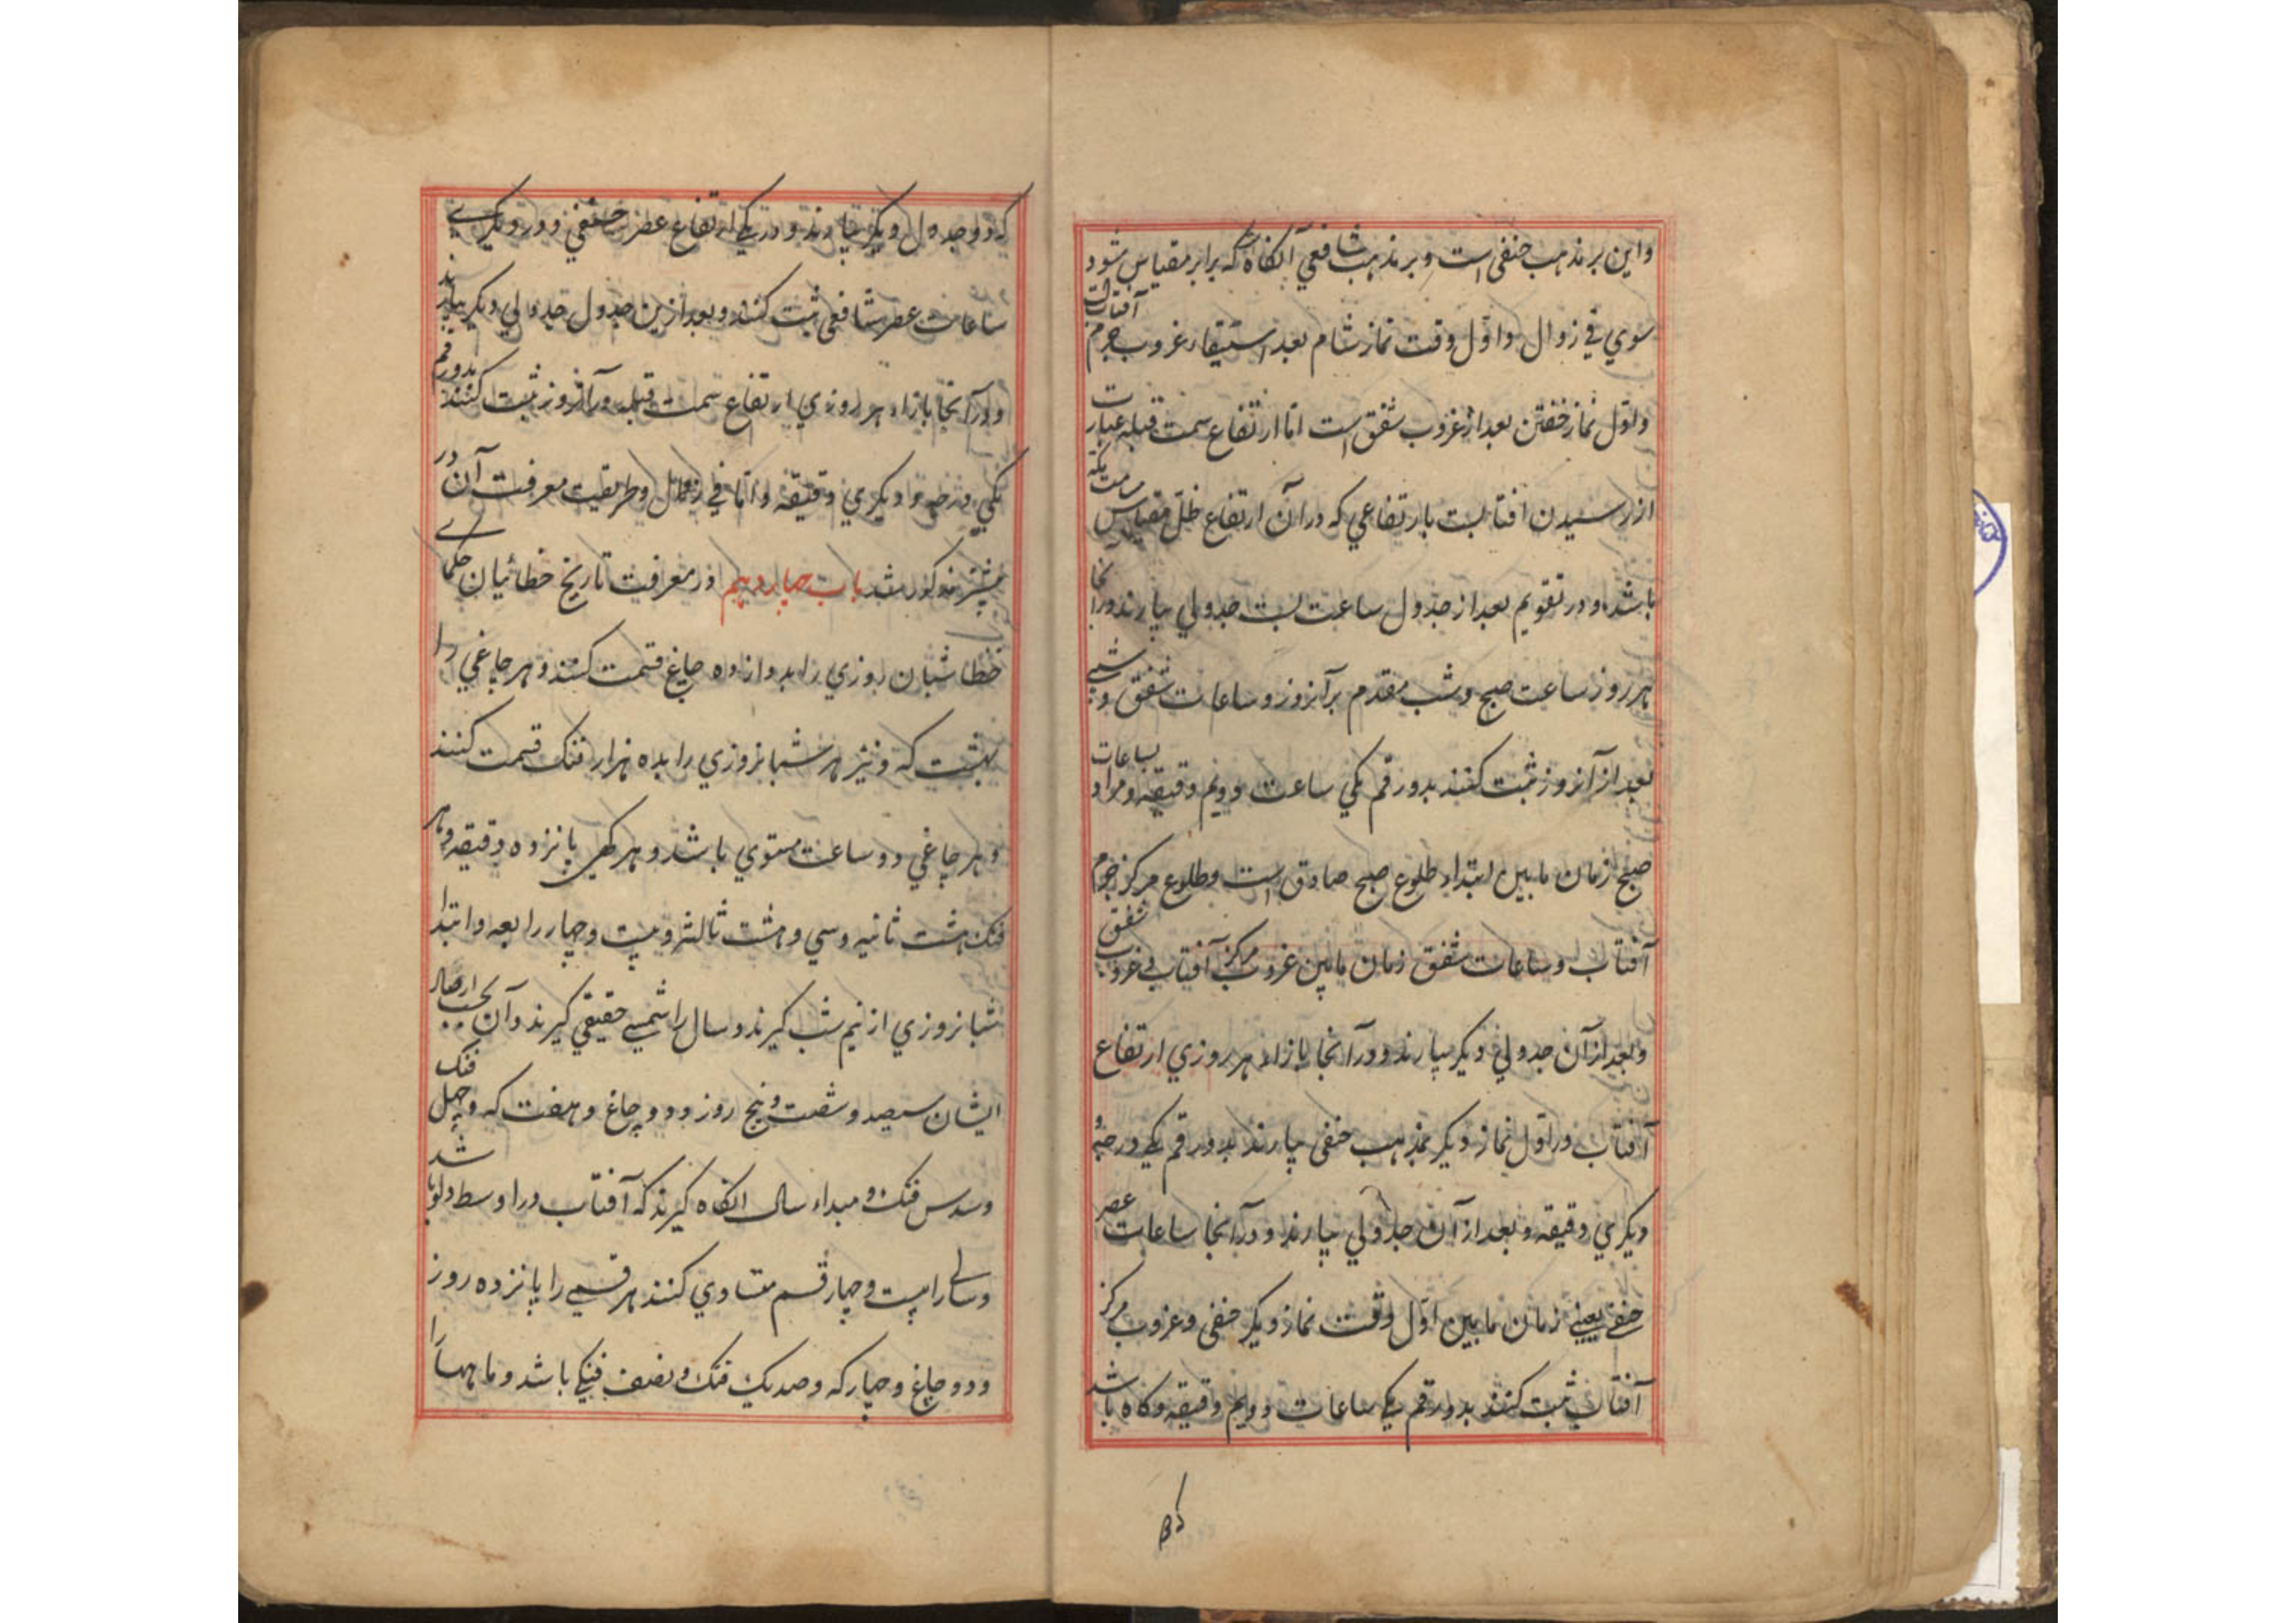 واین بر مذهب حنفی است و بر مذهب شافعی آنگاه که برابر مقیاس شود
سوي في زوال و اوّل وقت نماز شام بعد استیقار غروب جرم آفتاب است
و اوّل نماز خفتن بعد از غروب شفق است امّا ارتفاع سمت قبله عبارت
از رسیدن افتابست بارتفاعي که در آن ارتفاع ظلّ مقیاس سمت مکه
باشد و در تقویم بعد از جدول ساعت بست جدولي بیارند و در آنجا
هر روز ساعت صبح و شب مقدم بر آنروز و ساعات شفق و شبی
بعد از آنروز ثبت کنند بدو رقم یکي ساعت دویم دقیقه و مراد بساعات
صبح زمان مابین ابتداء طلوع صبح صادق است و طلوع مرکز جرم
آفتاب و ساعات شفق زمان مابین غروب مرکز آفتاب و غروب شفق
و بعد از آن جدولي دیگر بیارند و در آنجا بازاء هر روزي ارتفاع
آفتاب در اوّل نماز دیگر بمذهب حنفی بیارند بدو رقم یکی درجه و
دیگري دقیقه و بعد از آن جدولي بیارند و در آنجا ساعات عصر
حنفی یعنی زمان مابین اوّل وقت نماز دیگر حنفی و غروب مرکز
آفتاب ثبت کنند بدو رقم یکی ساعات دویم دقیقه و گاه باشد
که
که دو جدول دیگر بیارند و در یکی ارتفاع عصر حنفي و در دیگری
ساعات عصر شافعی ثبت کنند و بعد ازین جدول جدولي دیگر بیارند
و در آنجا بازاء هر روزي ارتفاع سمت قبله در آنروز ثبت کنند بدو رقم
یکي درجه و دیگري دقیقه و امّا في زوال و طریقیت معرفت آن در
پیشتر مذکور شد باب چهاردهم در معرفت تاریخ خطائیان حکمای
خطا شبان روزي را بدوازده چاغ قسمت کنند و هر چاغي را
بهشت که و نیز هر شبانروزي را بده هزار فنک قسمت کنند
و هر چاغي دو ساعت مستوي باشد و هر کهی پانزده دقیقه و هر
فنک هشت ثانیه و سي و هشت ثالثه و بیست و چهار رابعه و ابتدا
شبانروزي از نیم شب گیرند و سال را شمسی حقیقي گیرند و آن بحسب ارصاد
ایشان سیصد و شصت و پنج روز و دو چاغ و هفت که و چهل فنک
و سدس فنک و مبداء سال آنگاه گیرند که آفتاب در اوسط دلو باشد
و سالی را بیست و چهار قسم متساوي کنند هر قسمی را پانزده روز
و دو چاغ و چهار که و صد یک فنک و نصف فنکی باشد و ماهها را